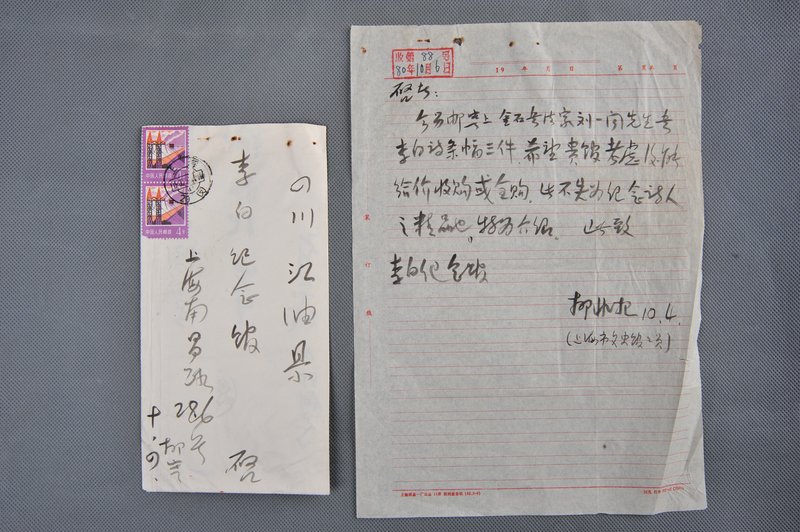 四川江油县
李白纪念馆 启
上海南昌路
286号
柳寄
十.四.
中国人民邮政
中国人民邮政 4分
收购 88 号
80年10月6日
19 年 月 日 第 页共 页
启者:
今另邮寄上金石书法家刘一闻先生书
李白诗条幅三件,希望贵馆考虑
给价收购或全购,此不失为纪念诗人
之精品也。特为介绍。此致
李白纪念馆
柳 10.4.
(上海市文史馆馆员)
装
订
线